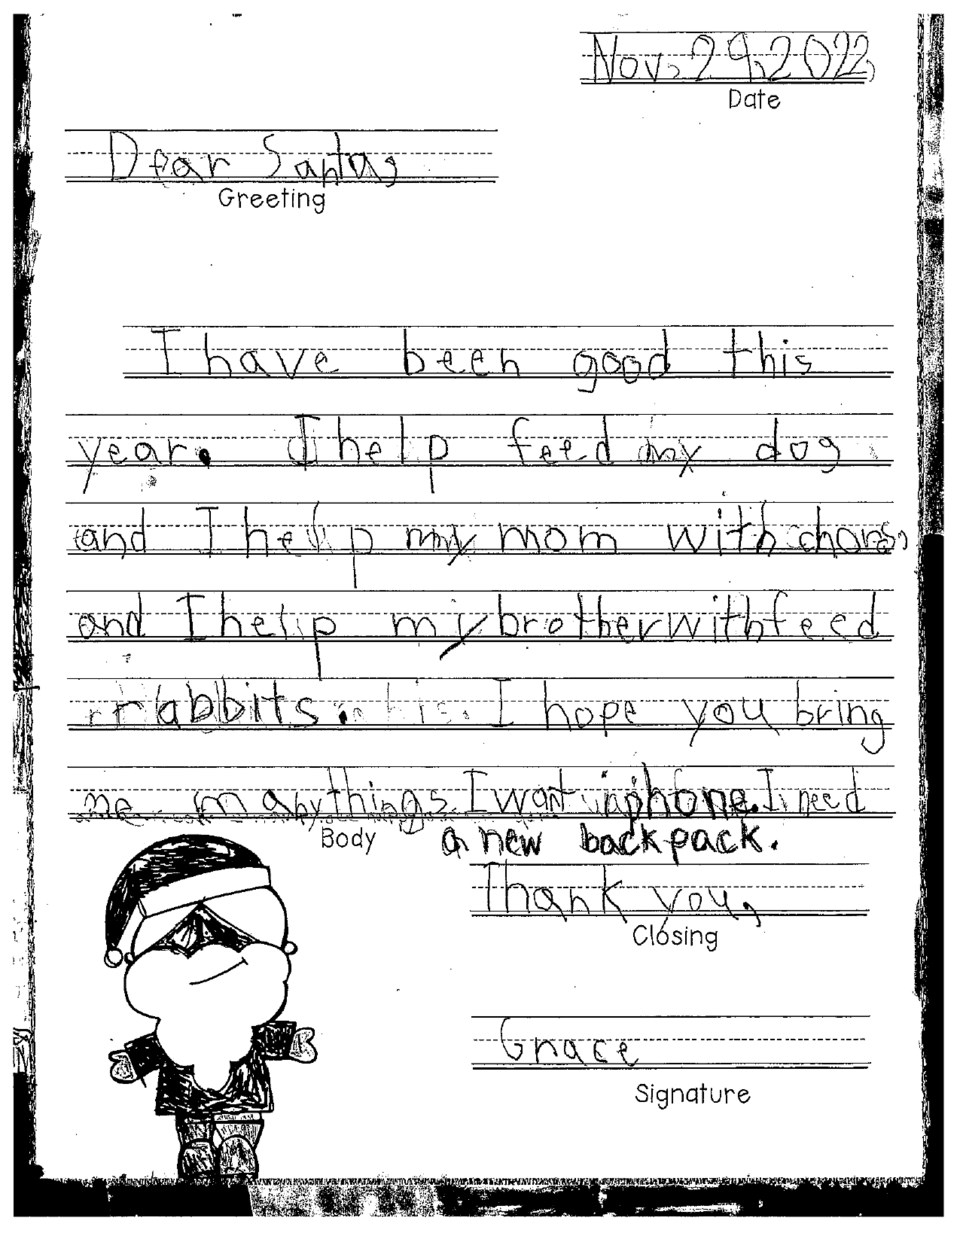 Nov. 29, 2022
Date
Dear Santa,
Greeting
I have been good this
year. I help feed my dog
and I help my mom with chors,
and I help my brother with feed
rabbits. I hope you bring
me many things. I want iphone. I need
Body
a new backpack.
Thank you,
Closing
Grace
Signature